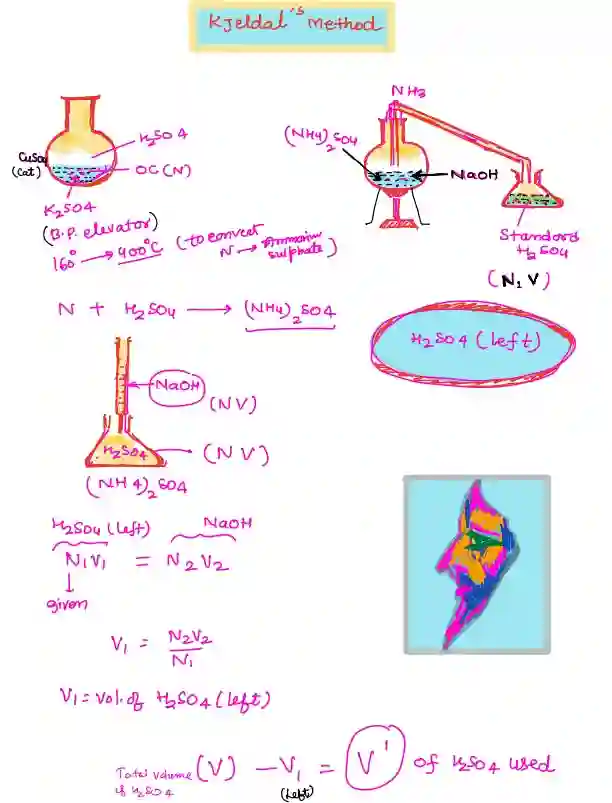 Kjeldal's Method
H2SO4
CuSO4
(Cat)
OC(N)
K2SO4
(B.P. elevator)
160° → 400°C (to convert
N → Ammonium
sulphate)
NH3
(NH4)2SO4
NaOH
Standard
H2SO4
(N1 V)
N + H2SO4 → (NH4)2SO4
H2SO4 (left)
NaOH
(NV)
H2SO4 → (NV)
(NH4)2SO4
H2SO4 (left) NaOH
N1V1 = N2V2
↓
given
V1 = N2V2
N1
V1 = Vol. of H2SO4 (left)
Total volume (V) - V1 = V' of H2SO4 used
of H2SO4 (left)